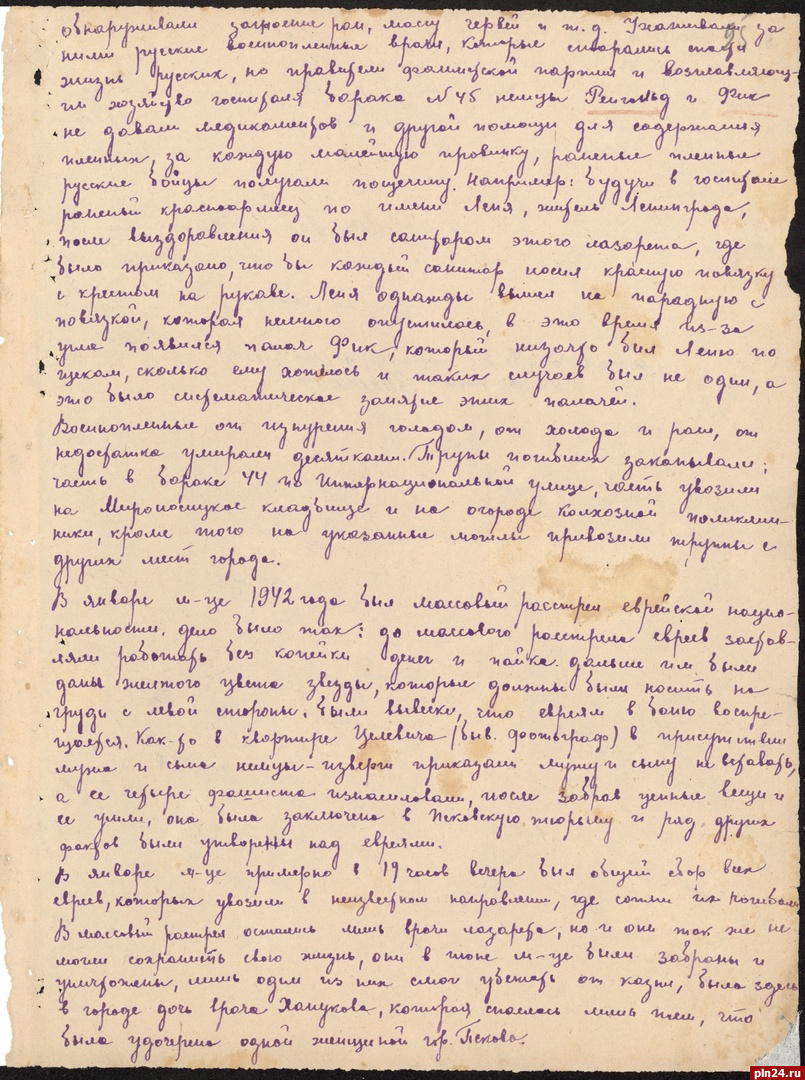 95
обнаруживали загноение ран, массу червей и т.д. Ухаживали за
ними русские военнопленные врачи, которые старались спасти
жизнь русских, но правители фашистской партии и возглавляющ-
ие хозяйство госпиталя барака №45 немцы Рейнгольд и Фик
не давали медикаментов и другой помощи для содержания
пленных, за каждую малейшую провинку, раненые пленные
русские бойцы получали пощечину. Например: будучи в госпитале
раненый красноармеец по имени Леня, житель Ленинграда,
после выздоравления он был санитаром этого лазарета, где
было приказано, что бы каждый санитар носил красную повязку
с крестом на рукаве. Леня однажды вышел на парадную с
повязкой, которая немного опустилась, в это время из-за
угла появился палач Фик, который низачто бил Леню по
щекам, сколько ему хотелось и таких случаев был не один, а
это было систематическое занятие этих палачей.
Военнопленные от изнурения голодом, от холода и ран, от
недостатка умирали десятками. Трупы погибших закапывали:
часть в бараке 44 по Интернациональной улице, часть увозили
на Мироносицкое кладбище и на огороде Колхозной поликли-
ники, кроме того на указанные могилы привозили труппы с
других мест города.
В январе м-це 1942 года был массовый расстрел еврейской нацио-
нальности. дело было так: до массового расстрела евреев застав-
ляли работать без копейки денег и пайка. дальше им были
даны желтого цвета звезды, которые должны были носить на
груди с левой стороны. были вывески, что евреям в баню воспре-
щается. Как-то в квартире Целевича (быв. фотограф) в присутствии
мужа и сына немцы-изверги приказали мужу и сыну не вставать,
а ее четыре фашиста изнасиловали, после забрав ценные вещи и
ее ушли, она была заключена в Псковскую тюрьму и ряд других
фактов были утворены над евреями.
В январе м-це примерно в 19 часов вечера был общий сбор всех
евреев, которых увозили в неизвестном направлении, где сотни их погибали
В массовый расстрел остались лишь врачи лазарета, но и они так же не
могли сохранить свою жизнь, они в июне м-це были забраны и
уничтожены, лишь один из них смог убежать от казни, была здесь
в городе дочь врача Ханукова, которая спаслась лишь тем, что
была удочерена одной женщиной гор. Пскова.
pln24.ru